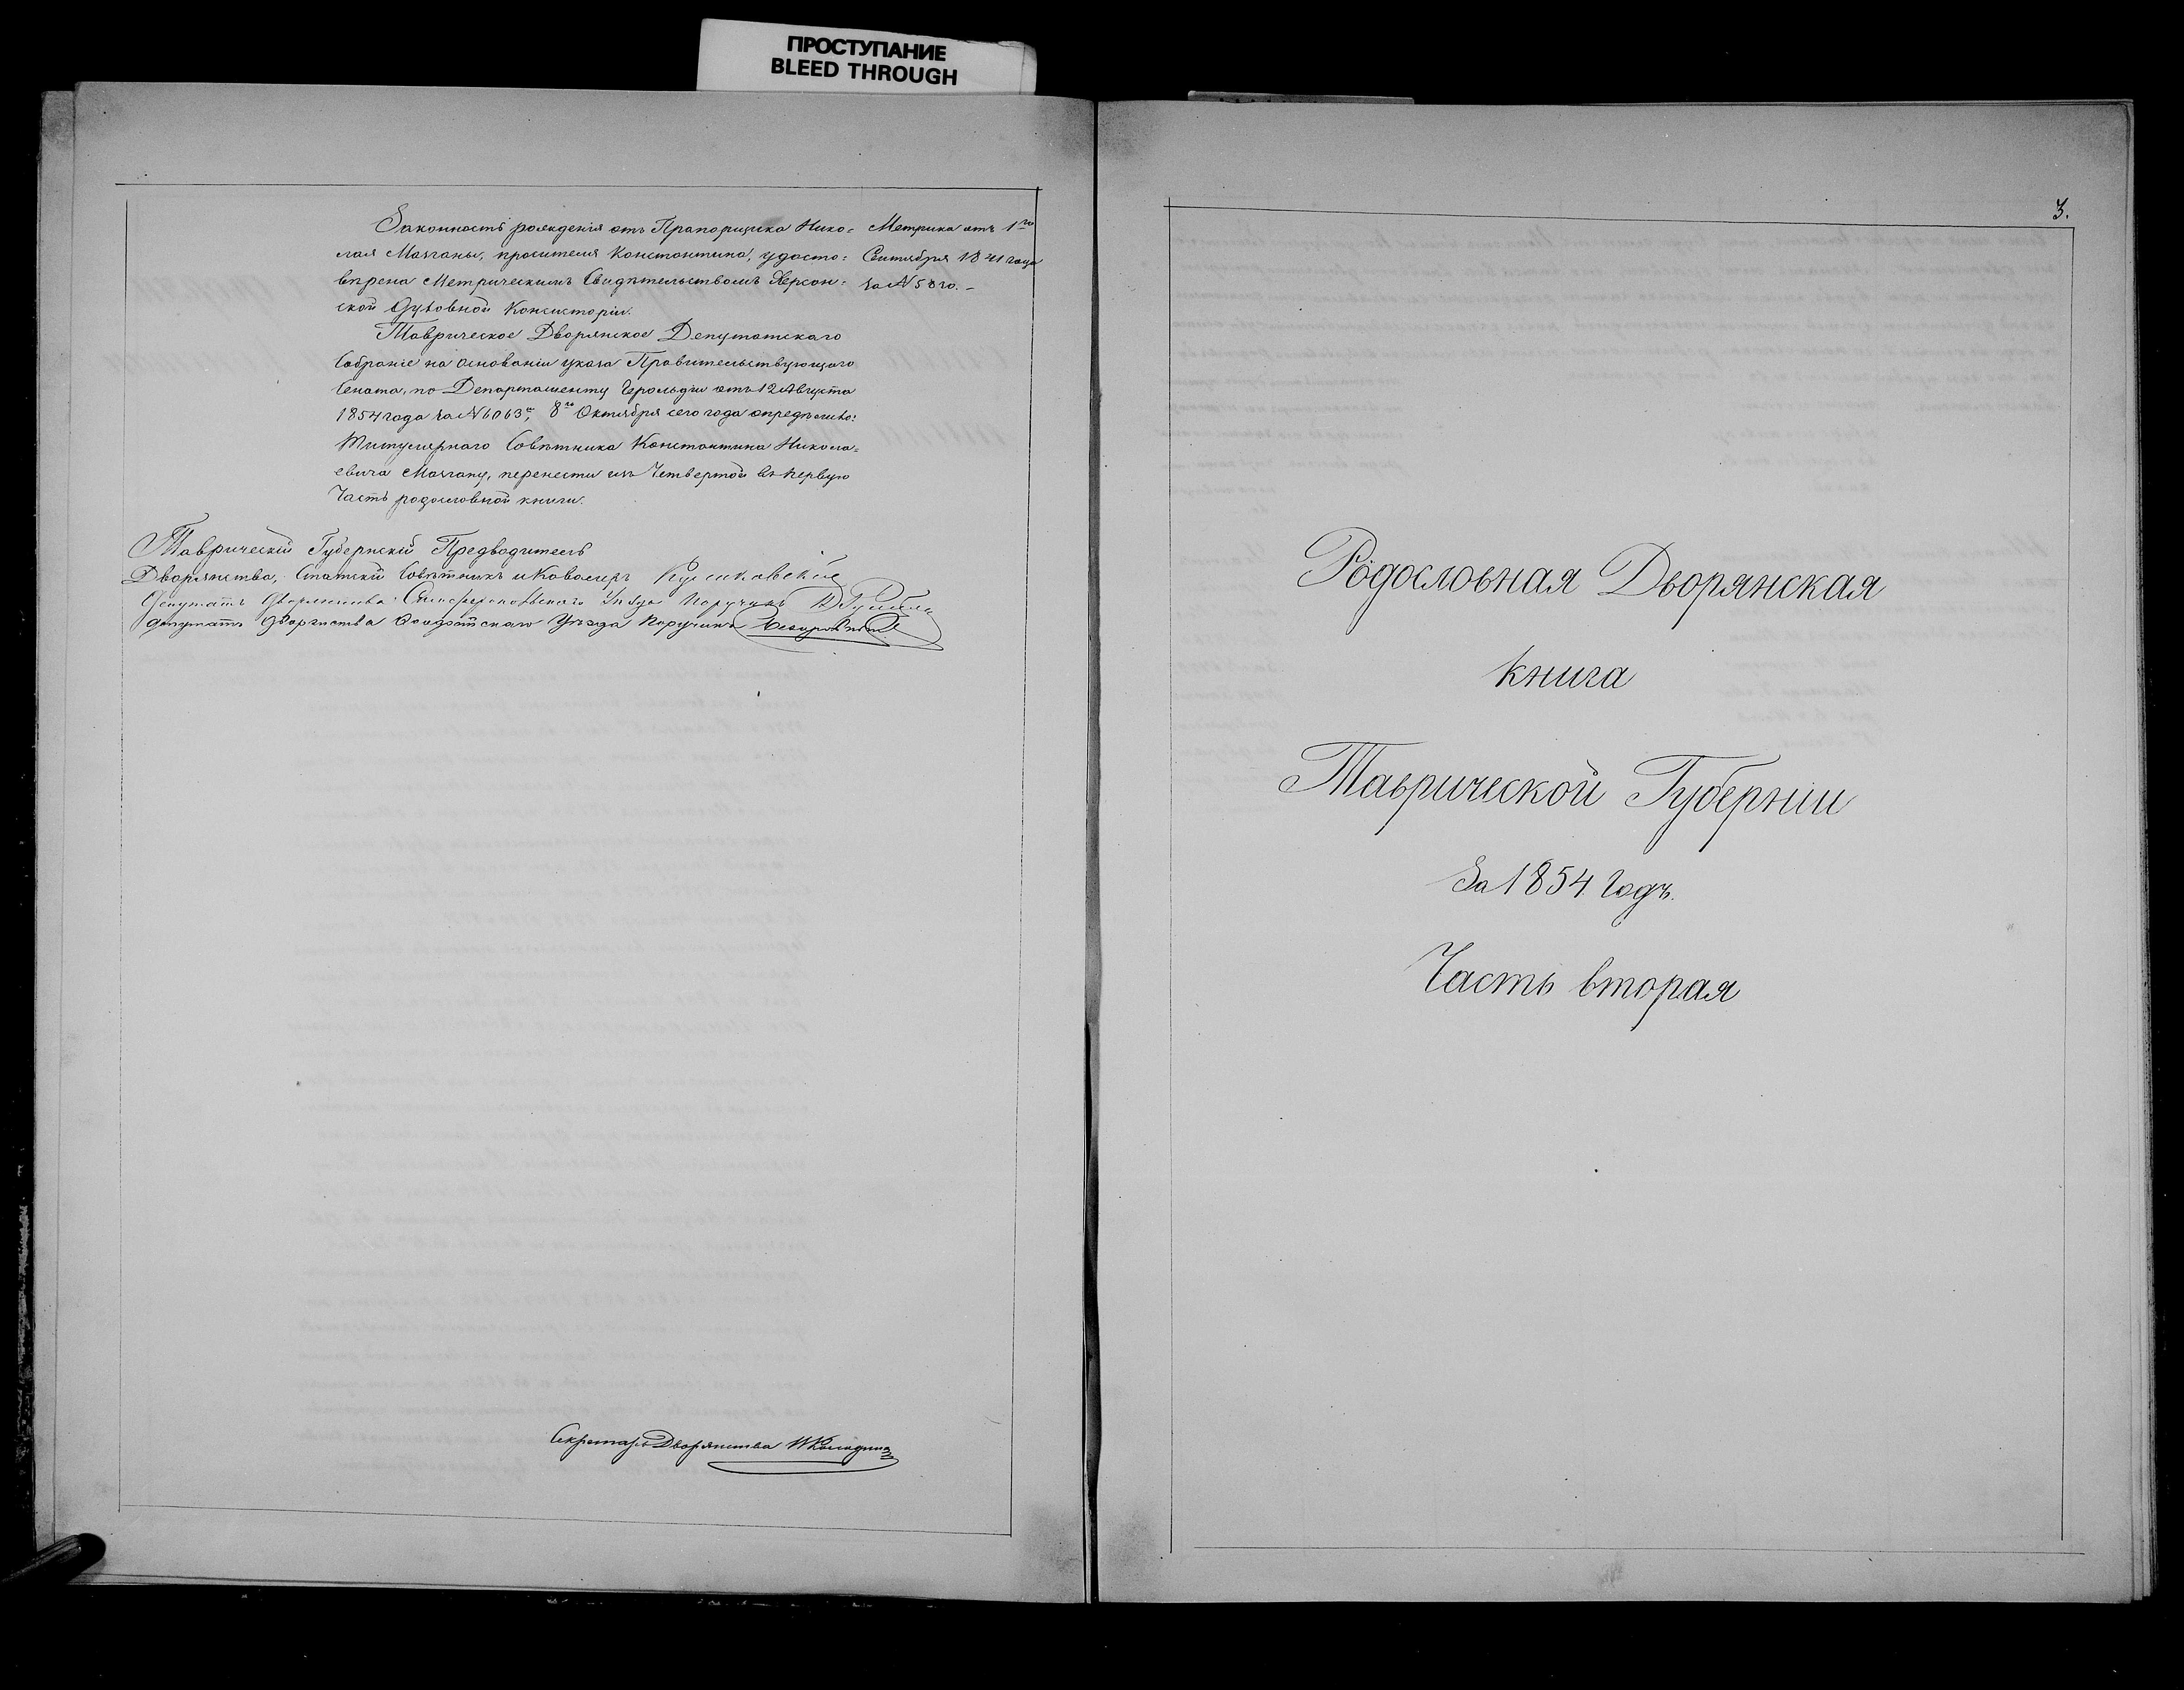 ПРОСТУПАНИЕ
BLEED THROUGH
Законность рожденія отъ Прапорщика Нико=
лая Мазганы, просителя Константина, удосто=
вѣрена Метрическимъ Свидѣтельствомъ Херсон=
ской Духовной Консисторіи.
Метрика отъ 1го
Сентября 1841 года
за №
Таврическое Дворянское Депутатскаго
Собраніе на основаніи указа Правительствующаго
Сената, по Департаменту Герольдіи отъ 12 Августа
1854 года за № 6063м, 8го Октября сего года опредѣлило:
Титулярнаго Совѣтника Константина Никола=
евича Мазгану, перенести изъ Четвертой въ первую
Часть родословной книги.
Таврическій Губернскій Предводитель
Дворянства, Статскій Совѣтникъ и Кавалеръ
Депутатъ Дворянства Симферопольскаго Уѣзда Поручикъ
Депутатъ Дворянства Уѣзда Поручикъ
Секретарь Дворянства
3.
Родословная Дворянская
книга
Таврической Губерніи
За 1854 Годъ.
Часть вторая